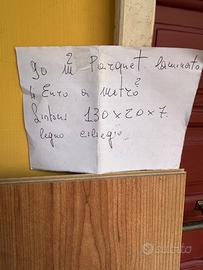 30 m² Parquet laminato
4 Euro a metro²
130x20x7
legno ciliegio
subito